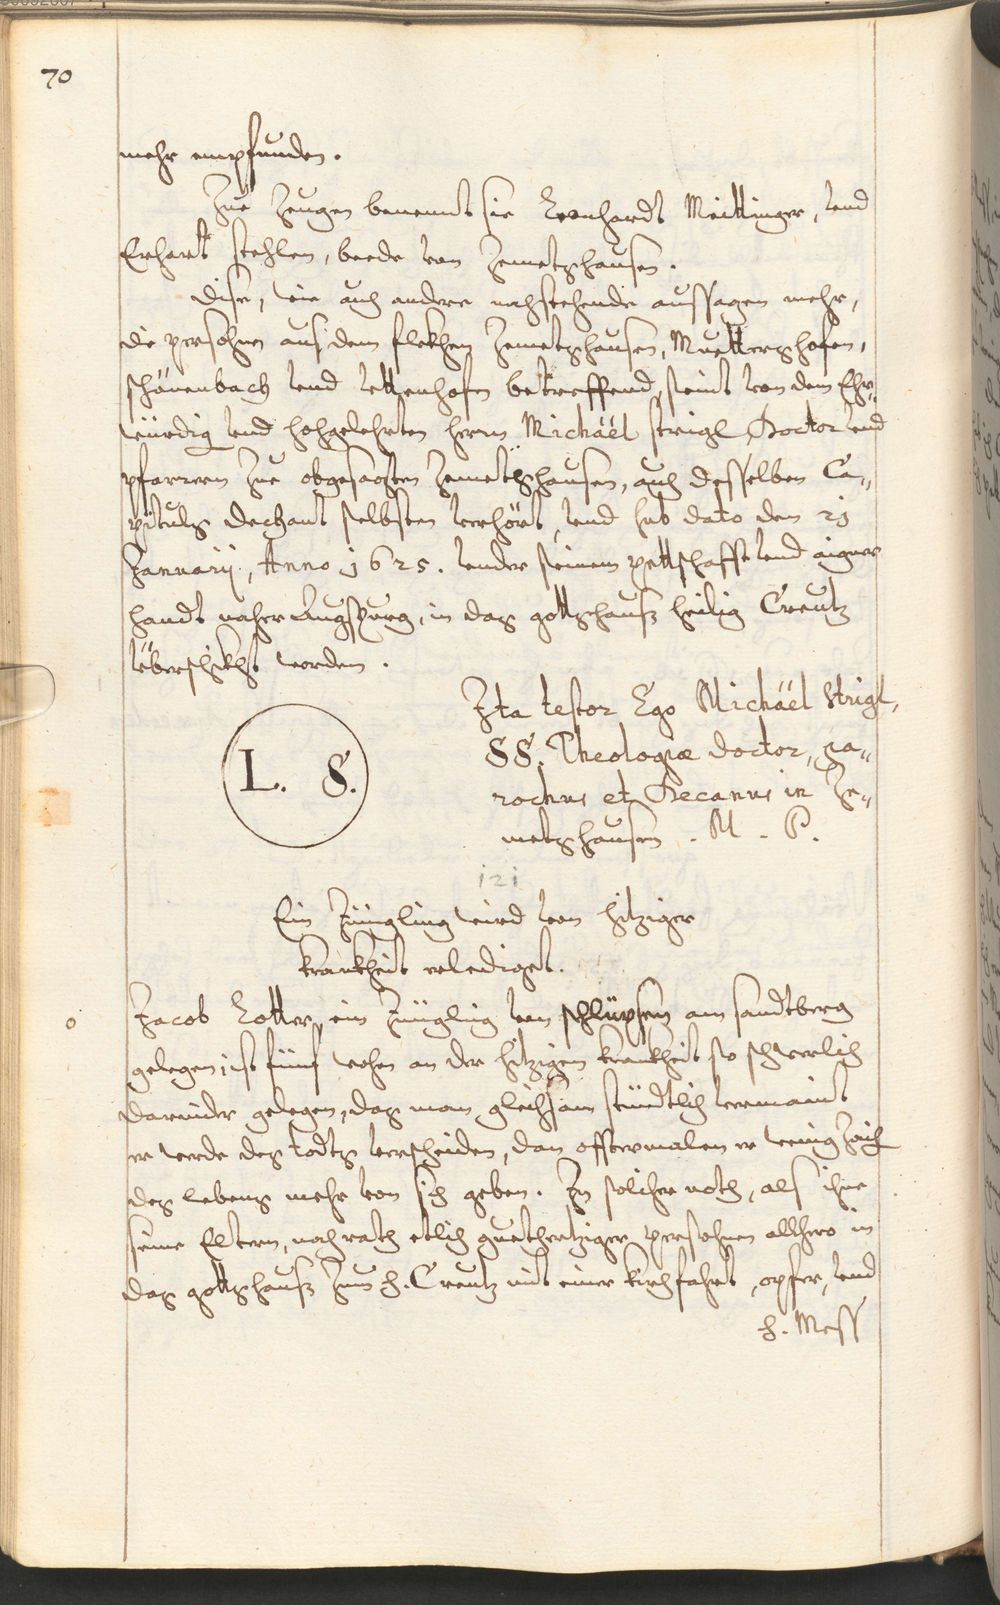 70
mehr empfunden.
Zue Zeugen benennt sie Leonhardt Meittinger, vnd
Erhart Stehlen, beede von Zemetzhausen.
Dise, wie auch andere nachstehende aussagen mehr,
die persohnen aus dem flekhen Zemetzhausen, Muetterzhofen,
schönenbach vnd vttenhofen betreffend, seint von dem Ehr„
würdig vnd hochgelehrten herrn Michäel Strigl Doctor vnd
pfarrern zue obgesagten Zemetzhausen, auch desselben Ca„
pitulz Dechant selbsten verhört, vnd sub dato den 21
Januarij, Anno 1625. vnder seinem pettschafft vnd aigner
handt naher Augspurg, in daz gottzhausz heilig Creutz
überschikht worden.
Ita testor Ego Michäel Strigl,
SS. Theologiæ Doctor, pa„
rochus et Decanus in Ze„
metzhausen. M. P.
L. S.
121
Ein Jüngling wird von hitziger
krankheit erlediget.
Jacob Lotter, ein Jüngling von schlüpsen am sandtberg
gelegen, ist fünf wochen an der hitzigen krankheit so schwerlich
darnider gelegen, daz man gleichsam stündtlich vermaint
er werde dez todtz verscheiden, dan offtermalen er wenig Zaich
dez lebens mehr von sich geben. In solcher noth, als ihne
seine Eltern, nach rath etlich guethertziger persohnen allhero in
daz gottzhausz zum h. Creutz mit einer kirchfahrt, opfer, vnd
h. Mess